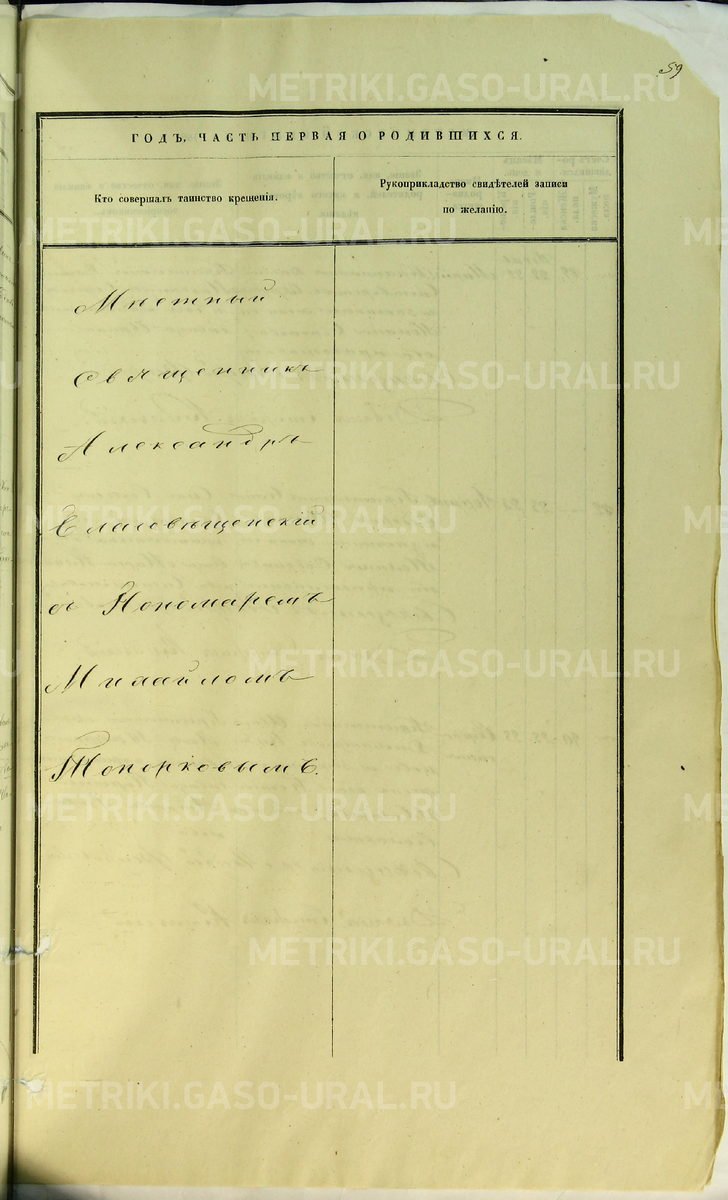 59
ГОДЪ, ЧАСТЬ ПЕРВАЯ О РОДИВШИХСЯ.
Кто совершалъ таинство крещенія.
Рукоприкладство свидѣтелей записи
по желанію.
Мѣстный
Священникъ
Александръ
Благовѣщенскій
съ Пономаремъ
Михаиломъ
Топорковымъ.
METRIKI.GASO-URAL.RU
METRIKI.GASO-URAL.RU
METRIKI.GASO-URAL.RU
METRIKI.GASO-URAL.RU
METRIKI.GASO-URAL.RU
METRIKI.GASO-URAL.RU
METRIKI.GASO-URAL.RU
METRIKI.GASO-URAL.RU